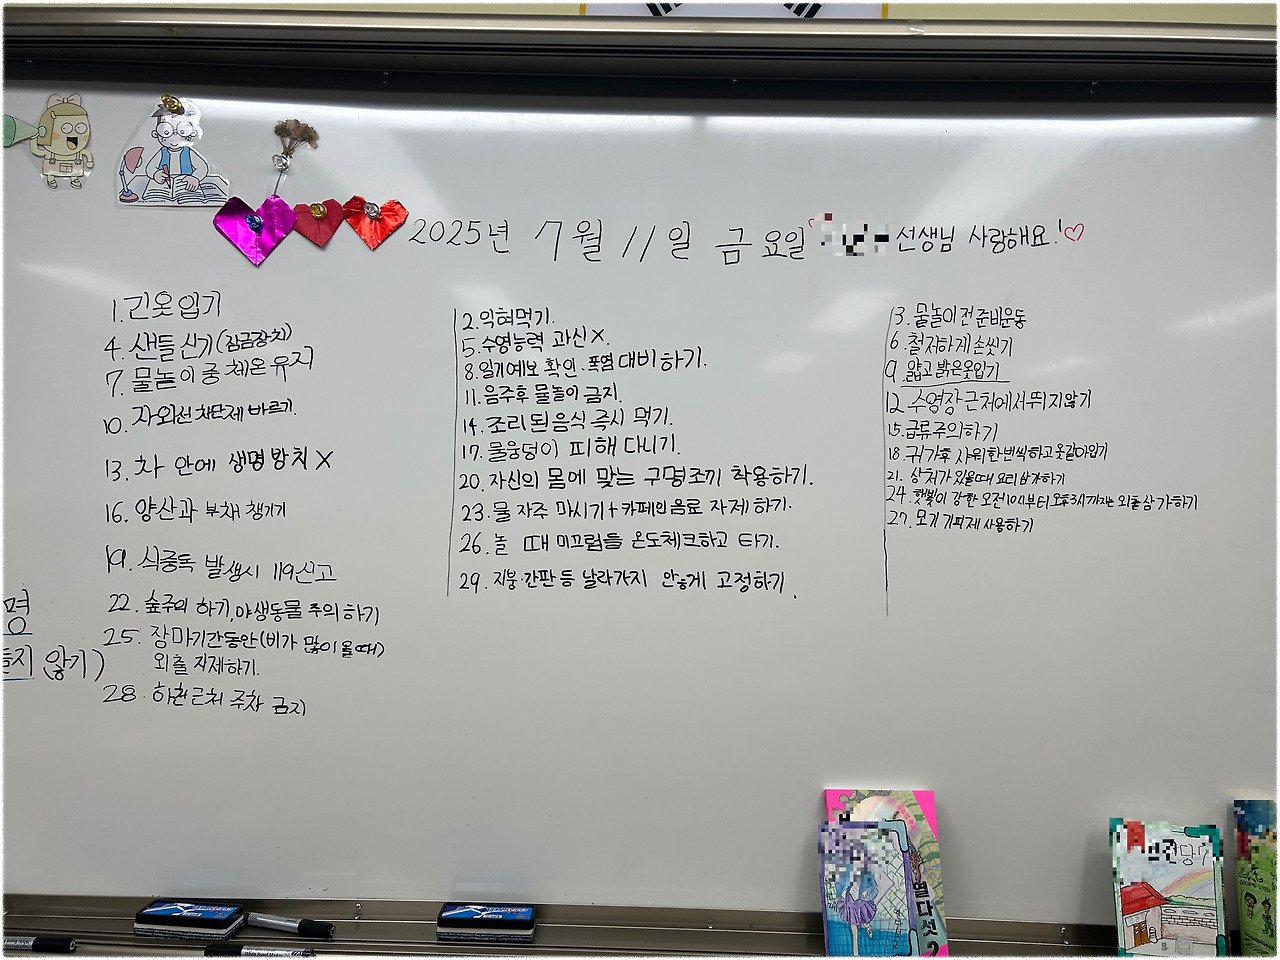 2025년 7월 11일 금요일 선생님 사랑해요!♡
1. 긴옷입기
4. 샌들신기(잠금장치)
7. 물놀이중 체온유지
10. 자외선차단제 바르기.
13. 차 안에 생명방치 X
16. 양산과 부채 챙기기
19. 식중독 발생시 119신고
22. 숲주의 하기, 야생동물 주의하기
25. 장마기간동안(비가 많이 올때)
외출 자제하기.
28. 하천근처 주차 금지
명
지 않기)
2. 익혀먹기.
5. 수영능력 과신 X.
8. 일기예보 확인·폭염 대비하기.
11. 음주후 물놀이 금지.
14. 조리된음식 즉시 먹기.
17. 물웅덩이 피해 다니기.
20. 자신의 몸에 맞는 구명조끼 착용하기.
23. 물 자주 마시기+카페인음료 자제하기.
26. 놀 때 미끄럼틀 온도체크하고 타기.
29. 지붕·간판 등 날라가지 안게 고정하기.
3. 물놀이전준비운동
6. 철저하게 손씻기
9. 얇고 밝은옷입기
12. 수영장근처에서 뛰지않기
15. 급류주의하기
18. 귀가후 샤워한번씩하고 옷갈아입기
21. 상처가있을때 요리삼가하기
24. 햇빛이 강한 오전10시부터 오후3시까지는 외출삼가하기
27. 모기기피제사용하기
열다섯